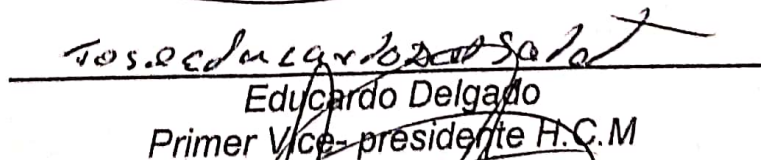 Jose educardo Delgado
Educardo Delgado
Primer Vice- presidente H.C.M